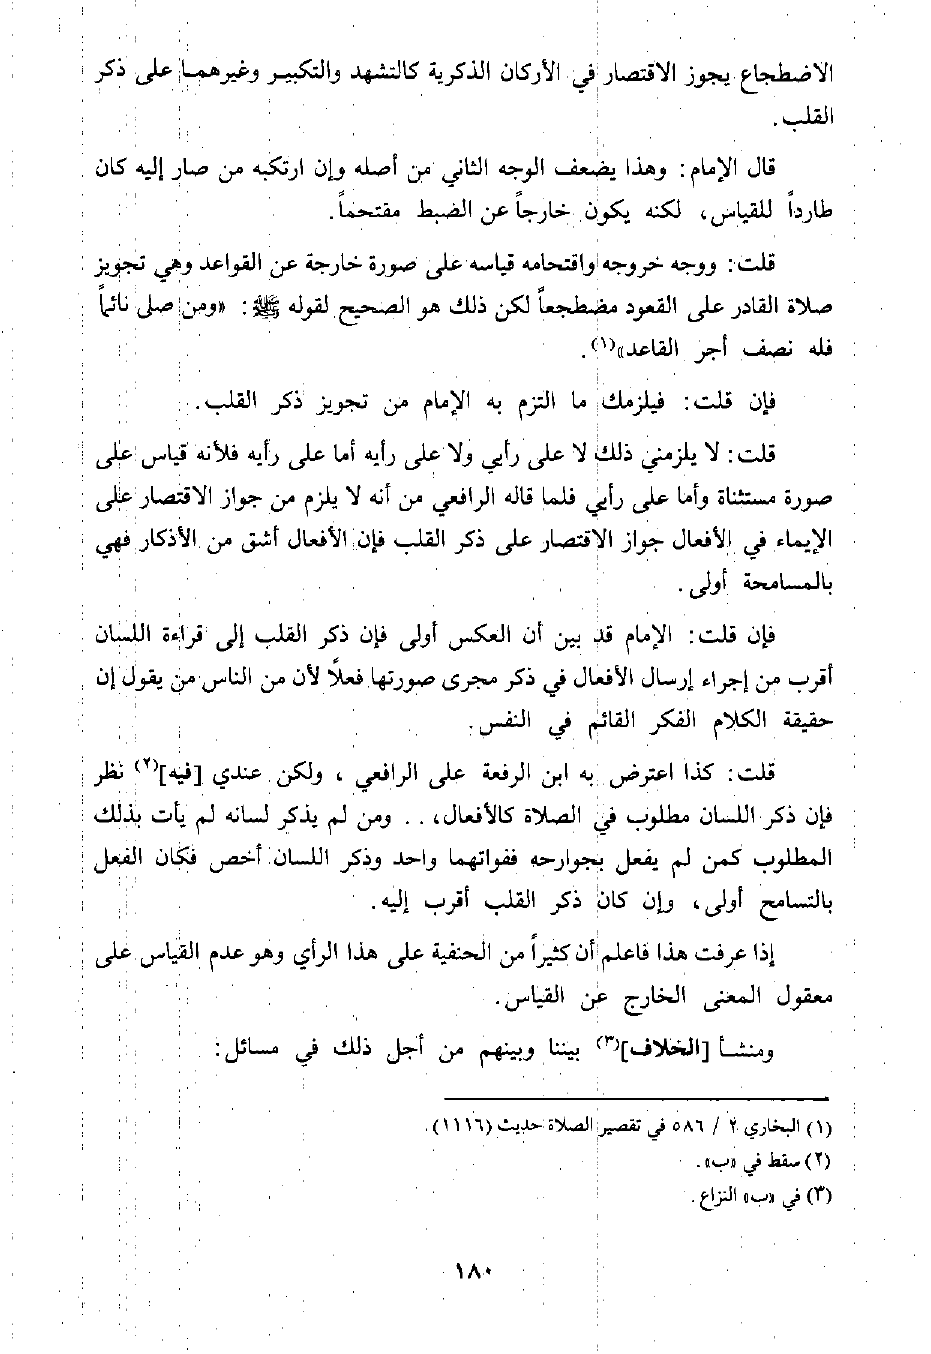 الاضطجاع يجوز الاقتصار في الأركان الذكرية كالتشهد والتكبير وغيرهما على ذكر
القلب.
قال الإمام: وهذا يضعف الوجه الثاني من أصله وإن ارتكبه من صار إليه كان
طارداً للقياس، لكنه يكون خارجاً عن الضبط مقتحماً.
قلت: ووجه خروجه واقتحامه قياسه على صورة خارجة عن القواعد وهي تجويز
صلاة القادر على القعود مضطجعاً لكن ذلك هو الصحيح لقوله ﷺ: «ومن صلى نائماً
فله نصف أجر القاعد»(١).
فإن قلت: فيلزمك ما التزم به الإمام من تجويز ذكر القلب.
قلت: لا يلزمني ذلك لا على رأيي ولا على رأيه أما على رأيه فلأنه قياس على
صورة مستثناة وأما على رأيي فلما قاله الرافعي من أنه لا يلزم من جواز الاقتصار على
الإيماء في الأفعال جواز الاقتصار على ذكر القلب فإن الأفعال أشق من الأذكار فهي
بالمسامحة أولى.
فإن قلت: الإمام قد بين أن العكس أولى فإن ذكر القلب إلى قراءة اللسان
أقرب من إجراء إرسال الأفعال في ذكر مجرى صورتها فعلاً لأن من الناس من يقول إن
حقيقة الكلام الفكر القائم في النفس.
قلت: كذا اعترض به ابن الرفعة على الرافعي، ولكن عندي [فيه](٢) نظر
فإن ذكر اللسان مطلوب في الصلاة كالأفعال،.. ومن لم يذكر لسانه لم يأت بذلك
المطلوب كمن لم يفعل بجوارحه ففواتهما واحد وذكر اللسان أخص فكان الفعل
بالتسامح أولى، وإن كان ذكر القلب أقرب إليه.
إذا عرفت هذا فاعلم أن كثيراً من الحنفية على هذا الرأي وهو عدم القياس على
معقول المعنى الخارج عن القياس.
ومنشأ [الخلاف](٣) بيننا وبينهم من أجل ذلك في مسائل:
(١) البخاري ٢ / ٥٨٦ في تقصير الصلاة حديث (١١١٦).
(٢) سقط في «ب».
(٣) في «ب» النزاع.
١٨٠